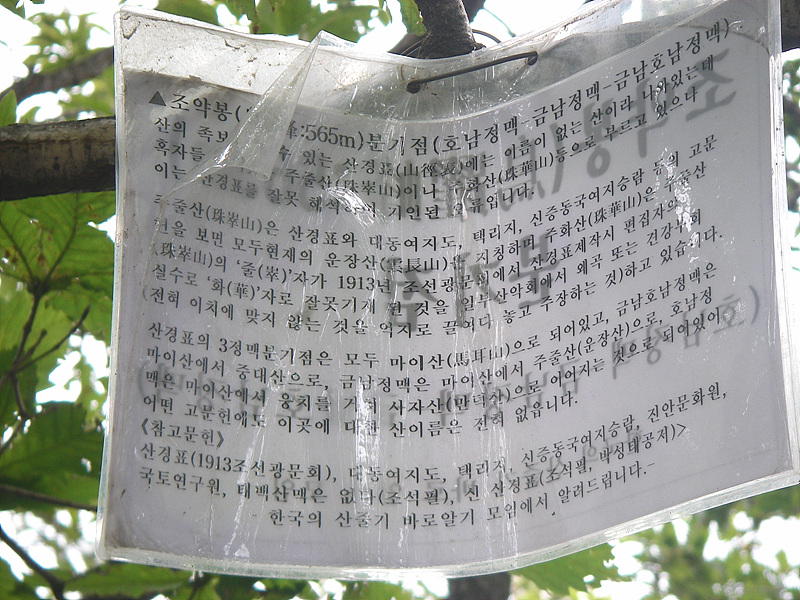 ▲조약봉( :565m)분기점(호남정맥-금남정맥-금남호남정맥)
산의 족보 있는 산경표(山徑表)에는 이름이 없는 산이라 나와있는데
혹자들 주줄산(珠崒山)이나 주화산(珠華山)등으로 부르고 있으나
이는 산경표를 잘못 해석 기인된 오류입니다.
주줄산(珠崒山)은 산경표와 대동여지도, 택리지, 신증동국여지승람 등의 고문
헌을 보면 모두현재의 운장산(雲長山)을 지칭하며 주화산(珠華山)은 주줄산
(珠崒山)의 '줄(崒)'자가 1913년 조선광문회에서 산경표제작시 편집자의
실수로 '화(華)'자로 잘못기재 된 것을 일부산악회에서 왜곡 또는 건강부회
(전혀 이치에 맞지 않는 것을 억지로 끌여다 놓고 주장하는 것)하고 있습니다.
산경표의 3정맥분기점은 모두 마이산(馬耳山)으로 되어있고, 금남호남정맥은
마이산에서 중대산으로, 금남정맥은 마이산에서 주줄산(운장산)으로, 호남정
맥은 마이산에서 웅치를 거쳐 사자산(만덕산)으로 이어지는 것으로 되어있어
어떤 고문헌에도 이곳에 대한 산이름은 전혀 없읍니다.
《참고문헌》
산경표(1913조선광문회), 대동여지도, 택리지, 신증동국여지승람, 진안문화원,
국토연구원, 태백산맥은 없다(조석필), 신 산경표(조석필, 박성태공저)>
- 한국의 산줄기 바로알기 모임에서 알려드립니다.-